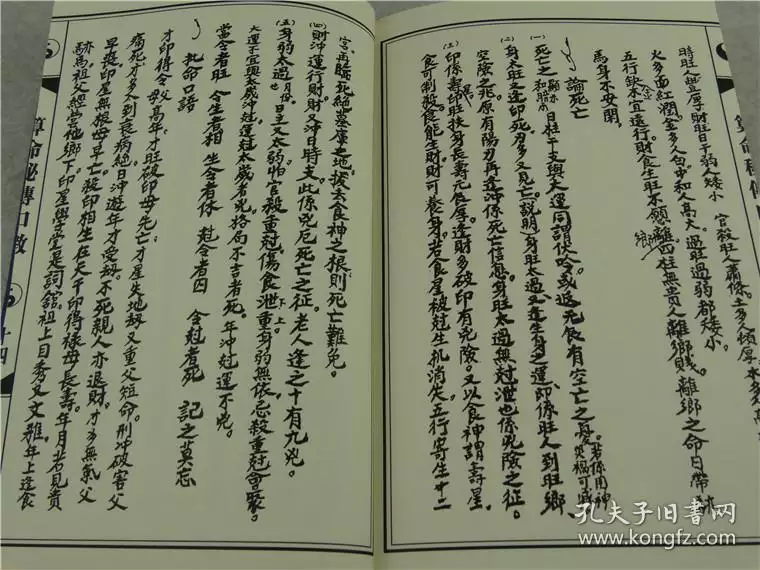 時旺人豐厚財旺日干弱人矮小 官殺旺人肅條。土多人傾厚。水多人
火多面紅潤。金多人白。中和人高大。過旺過弱都矮小。
五行缺本宜遠行。財食生旺不願離鄉。四柱無貴人離鄉賤。離鄉之命日帶
馬身不安閑。
論死亡
(一) 死亡之 日柱干支與大運同謂伏吟。或返元辰有空亡之憂。若係用神災禍可減
(二) 身太旺又逢印死。刃多又見亡。説明身旺太過又逢生身之運。即係旺人到旺鄉。
空險之死。原有陽刃再逢沖係死亡信息。身旺太過無尅泄也係凶險之征。
(三) 印係壽印旺扶身長壽元辰厚。逢財多破印有凶險。又以食神謂壽星。
食可制殺。食能生財。財可養身。若食星被尅生机消失。五行寄生十二
宮。再臨死絕墓庫之地。拔去食神之根。則死亡難免。
(四) 財沖運行財。財又沖日時支。此係凶厄死亡之征。老人逢之十有九凶。
(五) 身弱太過 月份。日主又太弱。怕官殺重尅。傷食泄重。身弱無依。忌殺重尅會聚。
大運不宜與太歲沖尅。運尅太歲者凶。格局不吉者死。年沖尅運不凶。
當令者旺 令生者相 生令者休 尅令者囚 令尅者死 記之莫忘
批命口語
才印得令母高年。才旺破印母先亡。才星失地劫又重父短命。刑沖破害父
痛死。才多人到衰病絕。日沖遊年才受劫。不死親人亦退財。才多無氣父
早喪。印星無根母早亡。殺印相生在天干。印得祿母長壽。年月若見貴
馬祖父經營他鄉。下印星學堂是詞館。祖上目秀又文雅。年上逢食
算命秘傳口教
十四
孔夫子旧书网
www.kongfz.com